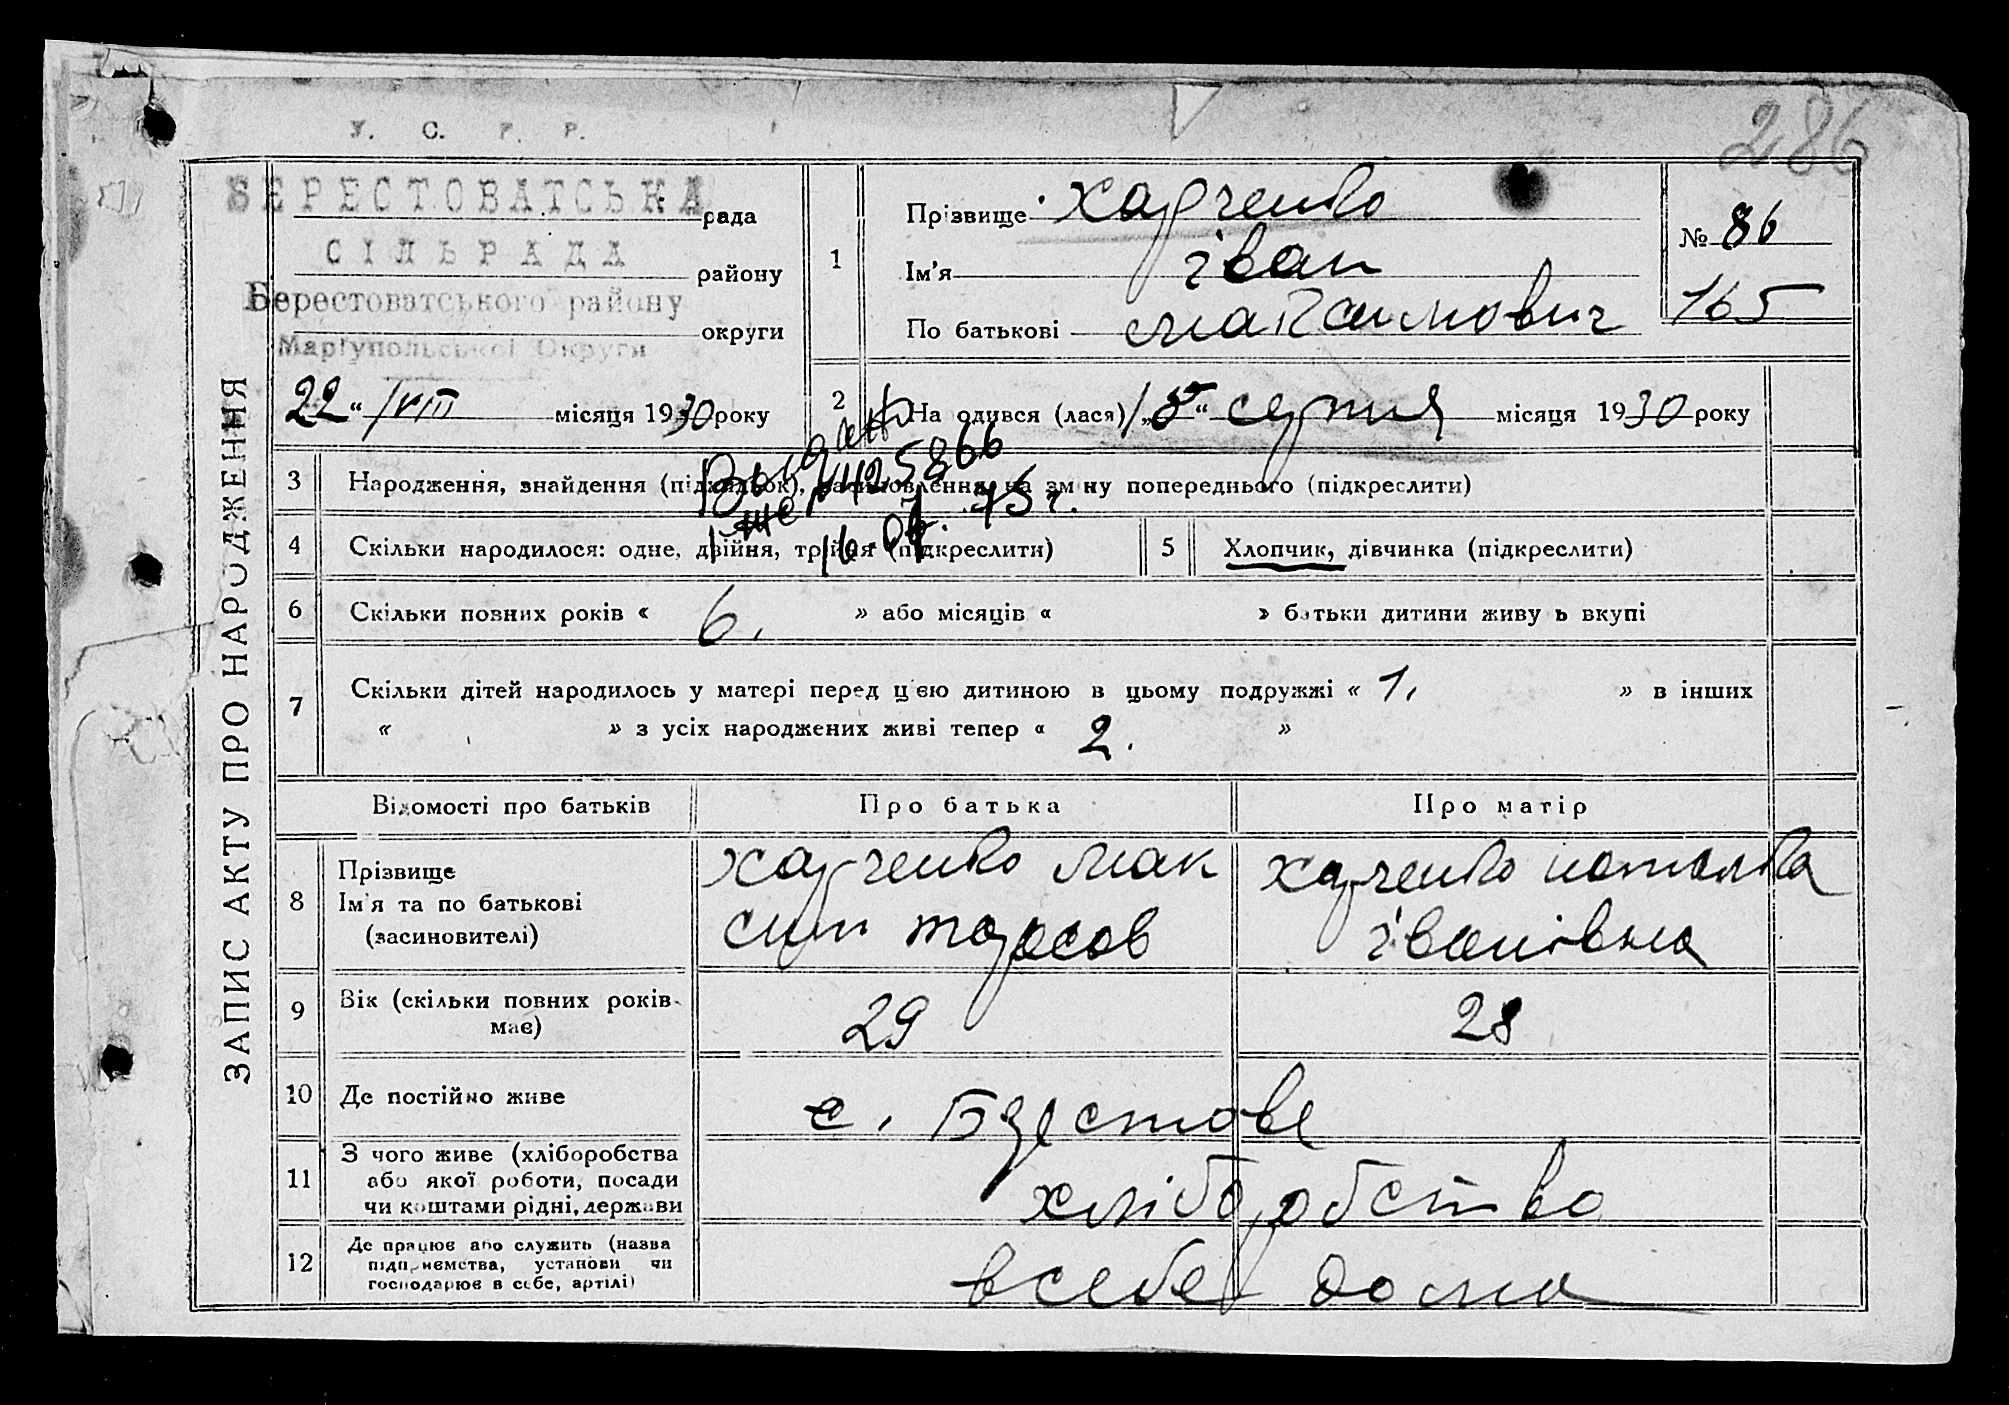 286
У. С. Р. Р.
БЕРЕСТОВАТСЬКА рада
СІЛЬРАДА району
Берестоватського району
округи
Маріупольської Округи
22 “ VIII місяця 1930 року
ЗАПИС АКТУ ПРО НАРОДЖЕННЯ
1
Прізвище Харченко
Ім’я іван
По батькові максимович
№ 86
165
2 На одився (лася) „15“ серпня місяця 1930 року
3 Народження, знайдення (підкидьок), засиновлення, на зміну попереднього (підкреслити)
425866
75 г.
4 Скільки народилося: одне, двійня, трійня (підкреслити)
5 Хлопчик, дівчинка (підкреслити)
6 Скільки повних років « 6. » або місяців « » батьки дитини живу ь вкупі
7 Скільки дітей народилось у матері перед цією дитиною в цьому подружжі « 1. » в інших
« » з усіх народжених живі тепер « 2. »
Відомості про батьків
Про батька
Про матір
8 Прізвище
Ім’я та по батькові
(засиновителі)
Харченко мак
сим тарасов
Харченко наталка
іванівна
9 Вік (скільки повних років має)
29
28
10 Де постійно живе
с. Берестове
11 З чого живе (хліборобства
або якої роботи, посади
чи коштами рідні, держави
хліборобство
12 Де працює або служить (назва
підприємства, установи чи
господарює в себе, артілі)
в себе дома